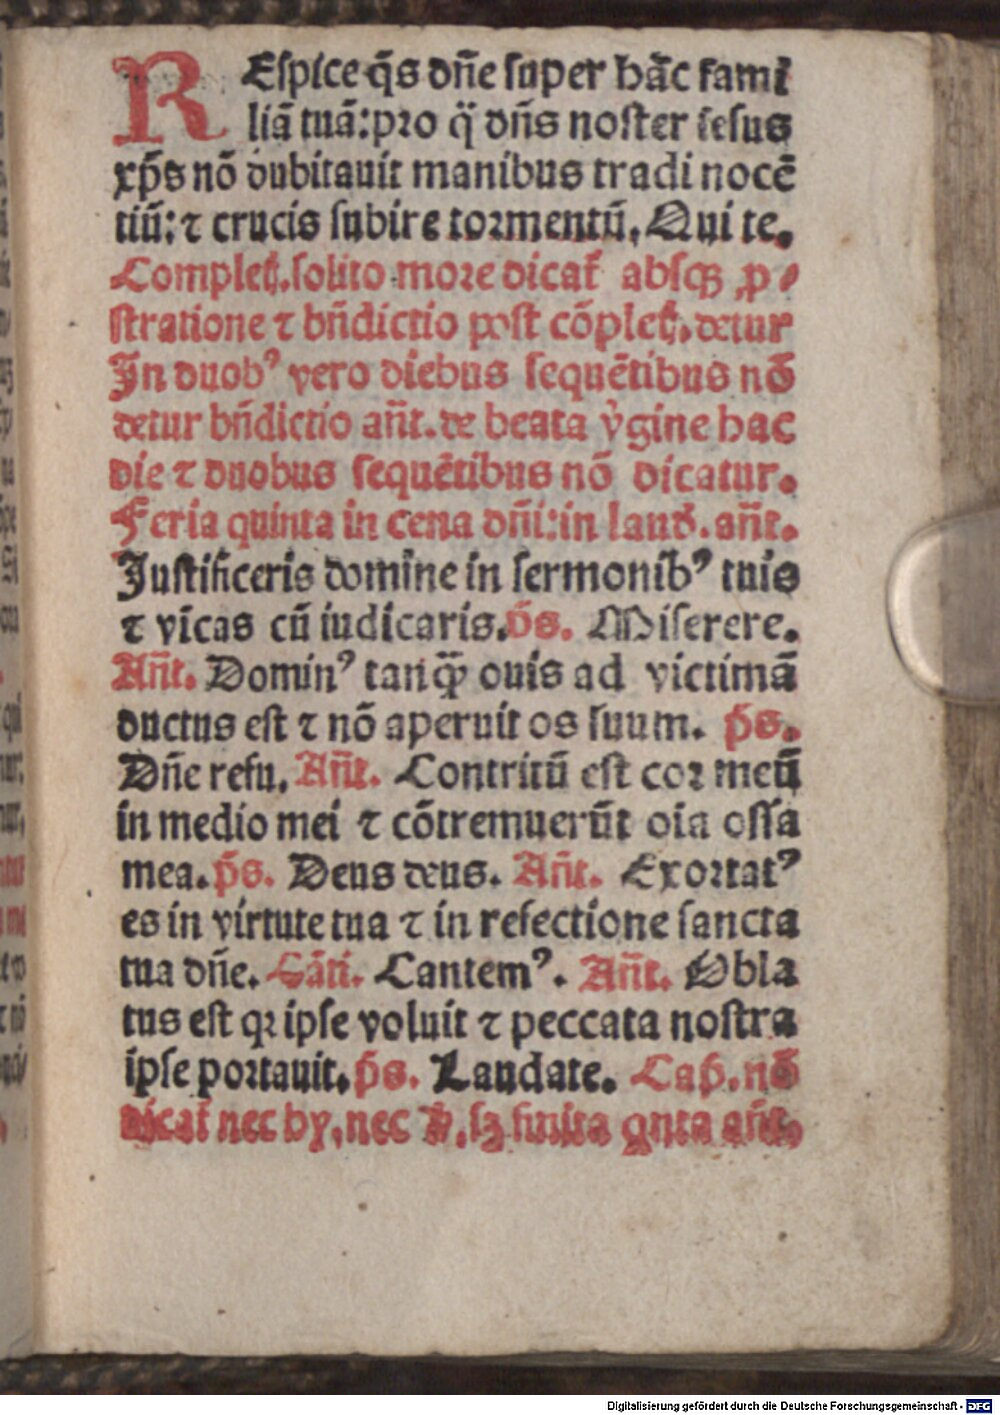 REspice q̄s dn̄e super hāc fami
liā tuā: pro q̄ dn̄s noster iesus
xp̄s nō dubitauit manibus tradi nocē
tiū: ⁊ crucis subire tormentū. Qui te.
Completꝫ. solito more dicat᷑ absqꝫ ꝓ⸗
stratione ⁊ bn̄dictio post cōpletꝫ. detur
In duobꝰ vero diebus sequētibus nō
detur bn̄dictio an̄t. de beata v̓gine hac
die ⁊ duobus sequētibus nō dicatur.
Feria quinta in cena dn̄i: in laud̓. an̄t.
Justificeris domine in sermonibꝰ tuis
⁊ vicas cū iudicaris. p̄s. Miserere.
An̄t. Dominꝰ tanq̄ꝫ ouis ad victimā
ductus est ⁊ nō aperuit os suum. p̄s.
Dn̄e refu. An̄t. Contritū est cor meū
in medio mei ⁊ cōtremuerūt oīa ossa
mea. p̄s. Deus deus. An̄t. Exortatꝰ
es in virtute tua ⁊ in refectione sancta
tua dn̄e. Cāti. Cantemꝰ. An̄t. Obla
tus est qꝛ ipse voluit ⁊ peccata nostra
ipse portauit. p̄s. Laudate. Cap̄. nō
dicat᷑ nec hy. nec ℣. sꝫ finita qnta an̄t.
Digitalisierung gefördert durch die Deutsche Forschungsgemeinschaft - DFG